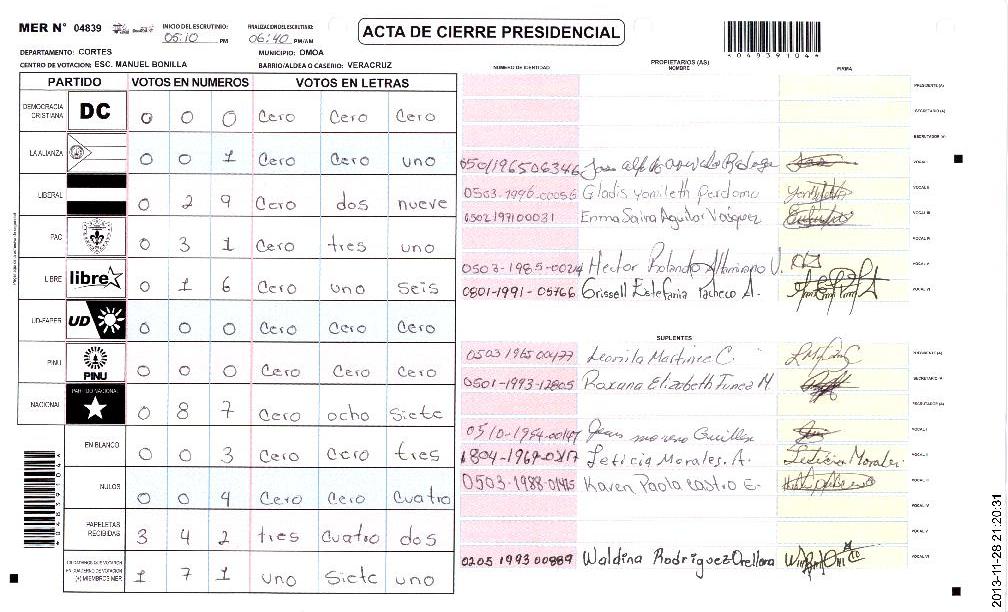 MER N° 04839 INICIO DEL ESCRUTINIO: 05:10 PM FINALIZACION DEL ESCRUTINIO: 06:40 PM/AM
ACTA DE CIERRE PRESIDENCIAL
*04839104*
DEPARTAMENTO: CORTES MUNICIPIO: OMOA
CENTRO DE VOTACION: ESC. MANUEL BONILLA BARRIO/ALDEA O CASERIO: VERACRUZ
PARTIDO VOTOS EN NUMEROS VOTOS EN LETRAS
DEMOCRACIA CRISTIANA DC 0 0 0 Cero Cero Cero
LA ALIANZA 0 0 1 Cero Cero uno
LIBERAL 0 2 9 Cero dos nueve
PAC 0 3 1 Cero tres uno
LIBRE libre 0 1 6 Cero uno Seis
UD-FAPER UD 0 0 0 Cero Cero Cero
PINU PINU 0 0 0 Cero Cero Cero
NACIONAL PARTIDO NACIONAL 0 8 7 Cero ocho Siete
EN BLANCO 0 0 3 Cero Cero tres
NULOS 0 0 4 Cero Cero Cuatro
PAPELETAS RECIBIDAS 3 4 2 tres Cuatro dos
(+) MIEMBROS MER 1 7 1 uno Siete uno
*04839104*
NUMERO DE IDENTIDAD PROPIETARIOS (AS) NOMBRE FIRMA
PRESIDENTE (A)
SECRETARIO (A)
ESCRUTADOR (A)
0501196506346 Jose VOCAL I
0503-1996-00056 Gladis Yamileth Perdomo VOCAL II
0502197100031 Emma Saira Aguilar Vasquez VOCAL III
VOCAL IV
0503-1985-00214 Hector Rolando Altamirano V. VOCAL V
0801-1991-05766 Grissell Estefania Pacheco A. VOCAL VI
SUPLENTES
0503 1965 00477 Leonila Martinez C. PRESIDENTE (A)
0501-1993-12805 Roxana Elizabeth M. SECRETARIO (A)
ESCRUTADOR (A)
0510-1954-00147 Jesus moreno Guillen VOCAL I
1804-1969-0 Leticia Morales. A. Leticia Morales. VOCAL II
0503-1988-01415 Karen Paola Castro E. VOCAL III
VOCAL IV
VOCAL V
0205 1993 00889 Waldina Rodriguez Orellana VOCAL VI
2013-11-28 21:20:31